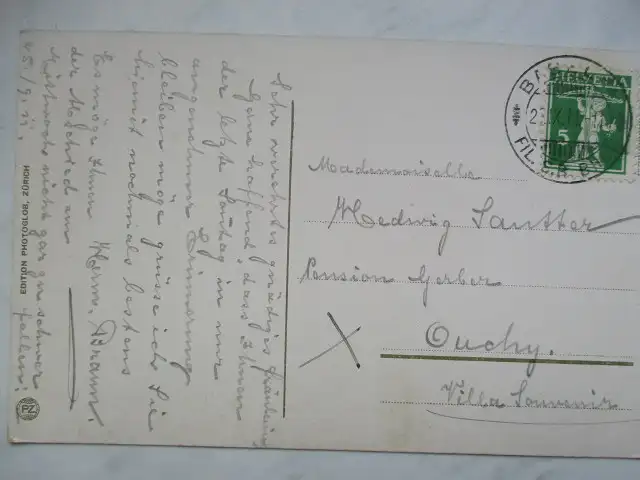 Sehr verehrtes gnädiges Fräulein,
Ganz hoffend, dass Ihnen
der letzte Sonntag in nur
angenehmer Erinnerung
bleiben möge grüsse ich Sie
hiemit nochmals bestens
Herm. Braun.
Es möge Ihnen
der Abschied am
Mittwoch nicht gar zu schwer
fallen!
EDITION PHOTOGLOB, ZÜRICH
PZ
HELVETIA
5
Mademoiselle
Hedwig Sautter
Pension Gerber
Ouchy.
Villa Souvenir